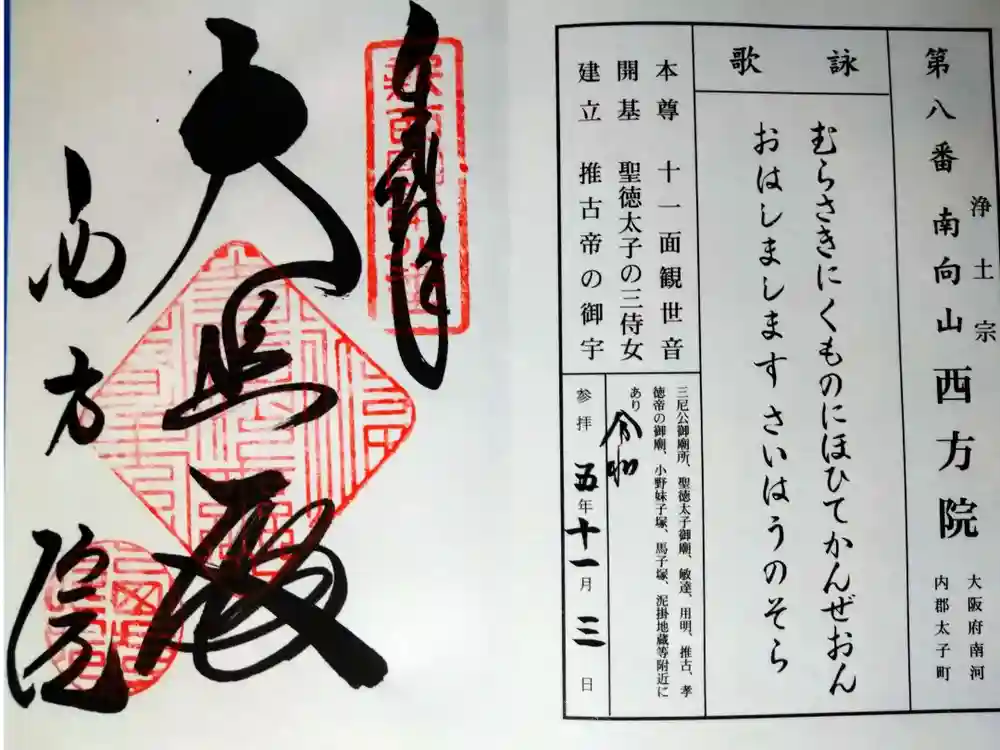 第八番 浄土宗 南向山 西方院
大阪府南河
内郡太子町
詠歌
むらさきにくものにほひてかんぜおん
おはしまします さいはうのそら
本尊 十一面観世音
開基 聖徳太子の三侍女
建立 推古帝の御宇
三尼公御廟所、聖徳太子御廟、敏達、用明、推古、孝
徳帝の御廟、小野妹子塚、馬子塚、泥掛地蔵等附近に
あり
令和
参拝 五年十一月三日
大悲殿
西方院